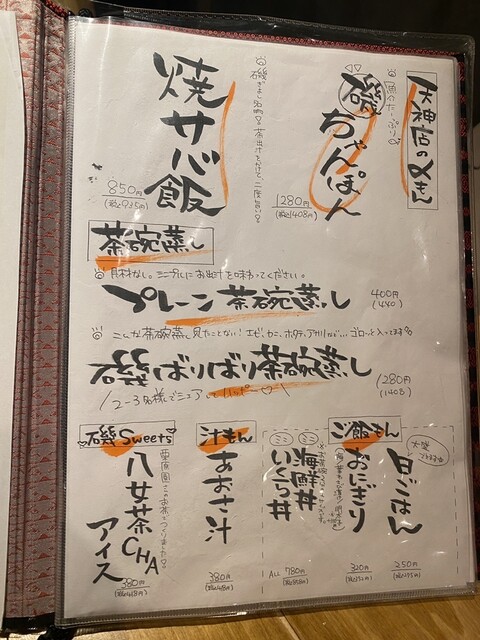 天神店の〆もん
魚介たっぷり
磯ちゃんぽん
1280円
(税込1408円)
焼サバ飯
850円
(税込935円)
茶碗蒸し
具材なし。シンプルにお出汁を味わってください。
プレーン茶碗蒸し
400円
(440)
こんな茶碗蒸し見たことない!エビ、カニ、ホタテ、アサリなど...ゴロッと入ってます
磯ばりばり茶碗蒸し
1280円
(1408)
2~3名様でシェアしてハッピー♡
ご飯もん
白ごはん
250円
おにぎり
320円
ミニ海鮮丼
ミニいくら丼
ALL 780円
汁もん
あおさ汁
380円
磯Sweets
八女茶CHA
アイス
380円